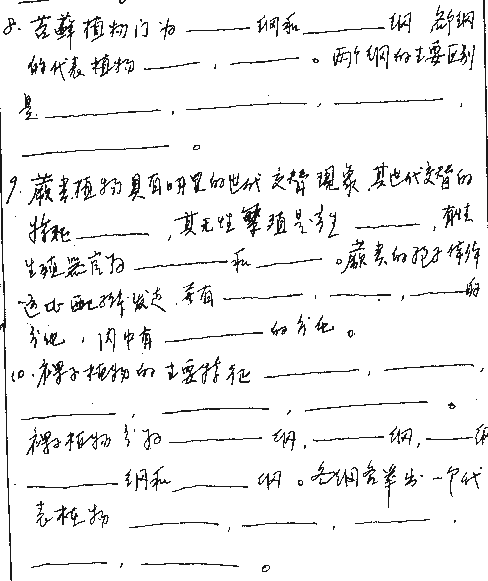 8. 苔藓植物门为____纲和____纲 各纲
的代表植物____,____。两个纲的主要区别
是____,____,____,
____。
9. 蕨类植物具有明显的世代交替现象,其世代交替的
特征____,其无性繁殖是产生____,有性
生殖器官为____和____。蕨类的孢子体
远比配子体发达,并有____,____,____的
分化,内中有____的分化。
10. 裸子植物的主要特征____,____,
____,____,____。
裸子植物分为____纲,____纲,____纲
____纲和____纲。各纲各举出一个代
表植物____,____,____,
____,____。